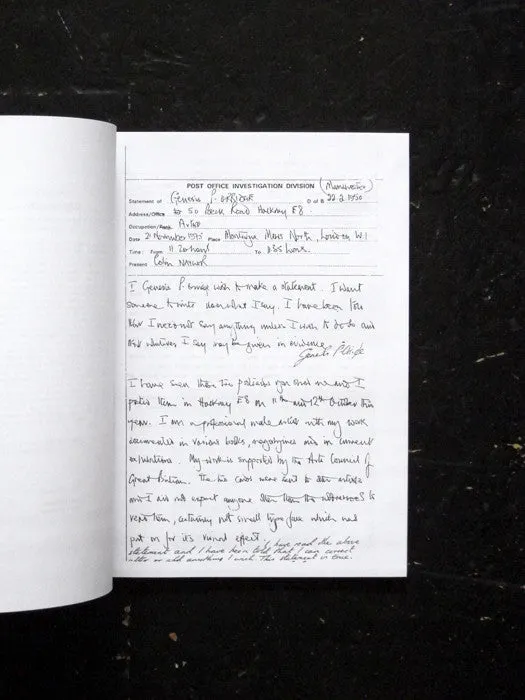 POST OFFICE INVESTIGATION DIVISION (Manchester)
Statement of Genesis P. ORRIDGE D of B 22.2.1950
Address/Office 50 Beck Road Hackney E8.
Occupation/Rank Artist
Date 21 November 1975 Place Mortimer Mews North, London W1
Time: From 11.20 hours To hours.
Present Colin
I Genesis P. Orridge wish to make a statement. I want
someone to write down what I say. I have been told
that I need not say anything unless I wish to do so and
that whatever I say may be given in evidence.
Genesis P. Orridge
I have seen the two postcards you show me and I
posted them in Hackney E8 on 11th and 12th October this
year. I am a professional male artist with my work
documented in various books, magazines and in current
exhibitions. My work is supported by the Arts Council of
Great Britain. The two cards were sent to artists
and I did not expect anyone other than the addressees to
read them, certainly not small type face which was
put on for it's visual effect. I have read the above
statement and I have been told that I can correct
alter or add anything I wish. This statement is true.